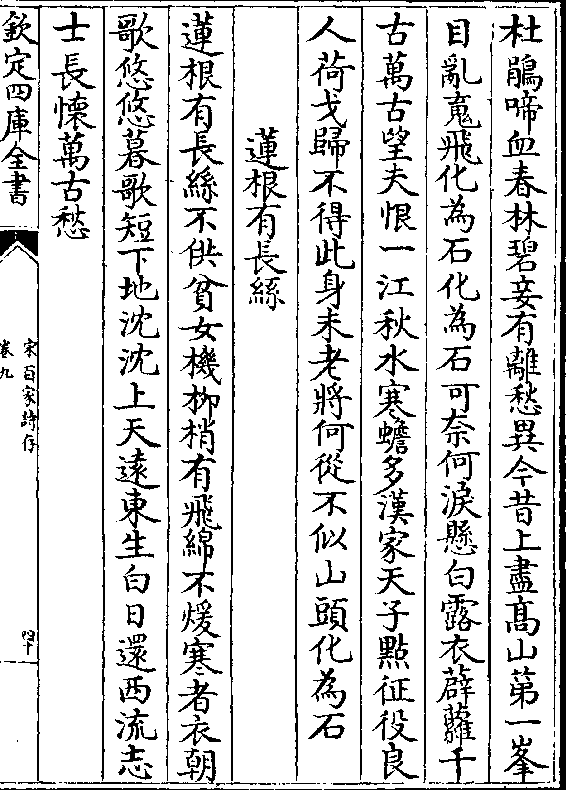 杜鵑啼血春林碧妾有離愁異今昔上盡高山第一峯
目亂䰟飛化為石化為石可奈何淚懸白露衣薜蘿千
古萬古望夫恨一江秋水寒蟾多漢家天子點征役良
人荷戈歸不得此身未老將何從不似山頭化為石
蓮根有長絲
蓮根有長絲不供貧女機栁梢有飛綿不煖寒者衣朝
歌悠悠暮歌短下地沈沈上天遠東生白日還西流志
士長懷萬古愁
欽定四庫全書
宋百家詩存
卷九
四十